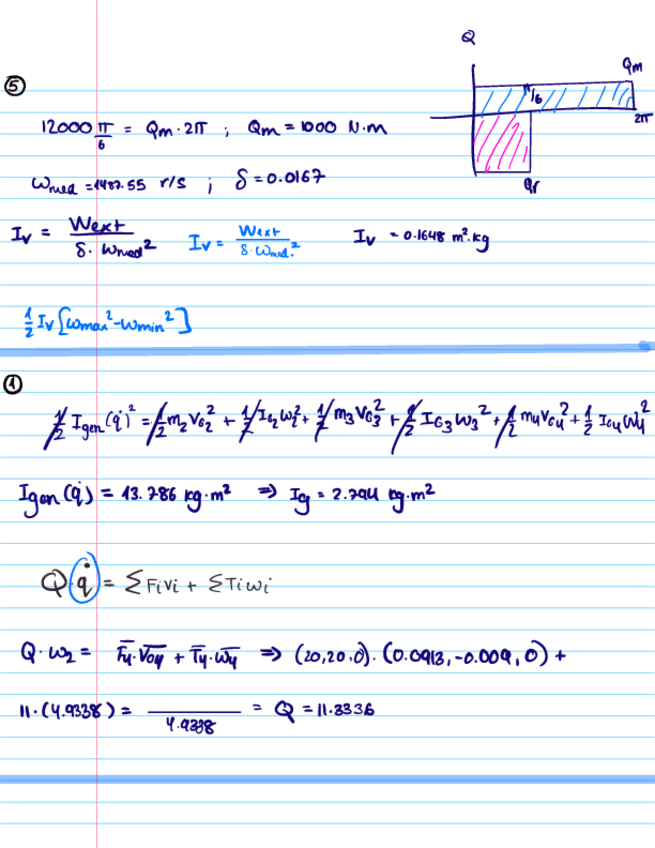 Q
Qm
⑤
π/6
2π
12000 π/6 = Qm · 2π ; Qm = 1000 N.m
Qr
ωmed = 1487.55 r/s ; δ = 0.0167
Iv = Wext / δ. ωmed² Iv = Wext / δ. ωmed.² Iv = 0.1648 m².kg
1/2 Iv [ωmax² - ωmin²]
①
1/2 Igen (q̇)² = 1/2 m2 VG2² + 1/2 IG2 ω2² + 1/2 m3 VG3² + 1/2 IG3 ω3² + 1/2 m4 VG4² + 1/2 IG4 ω4²
Igen (q̇) = 13.786 kg·m² => Ig = 2.794 kg·m²
Q q̇ = ΣFivi + ΣTiwi
Q · ω2 = F4·V04 + T4·ω4 => (20,20,0). (0.0913, -0.009, 0) +
11·(4.9338) = / 4.9338 = Q = 11.3336